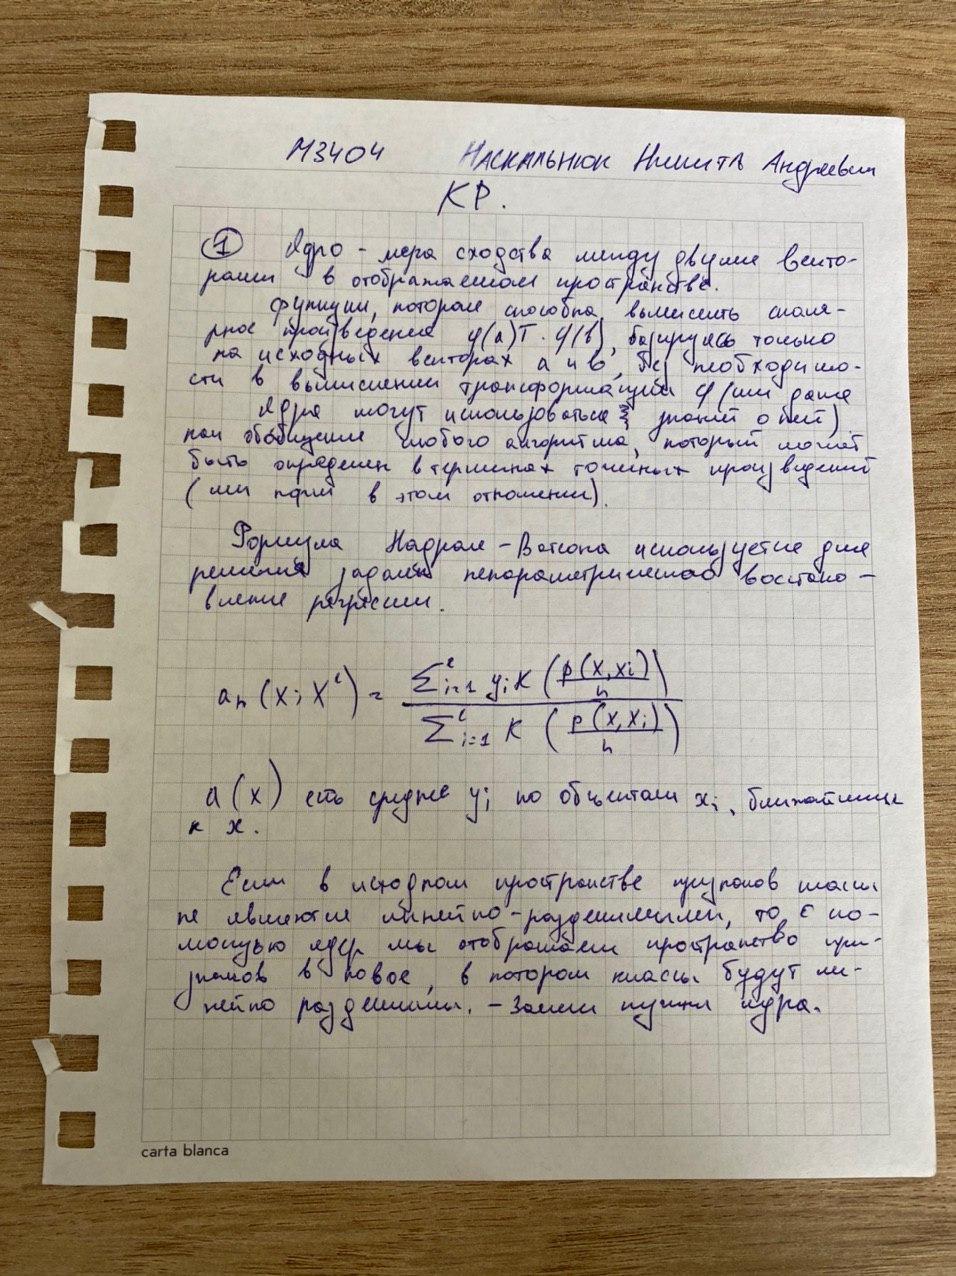 М3404 Наскальнюк Никита Андреевич
КР.
① Ядро - мера сходства между двумя векто-
рами в отображаемом пространстве.
Функция, которая способна вычислить скаля-
рное произведение φ(a)T · φ(b), базируясь только
на исходных векторах a и b, без необходимо-
сти в вычислении трансформации φ (или даже
Ядра могут использоваться знаний о ней)
как обобщение любого алгоритма, который может
быть определен в терминах точечных произведений
(или норм в этом отношении).
Формула Надрая - Ватсона используется для
решения задачи непараметрического восстано-
вления регрессии.
a_h (x; X^ℓ) = \frac{∑_{i=1}^{ℓ} y_i K (\frac{ρ(x, x_i)}{h})}{∑_{i=1}^{ℓ} K (\frac{ρ(x, x_i)}{h})}
a(x) есть среднее y_i по объектам x_i, ближайшие
к x.
Если в исходном пространстве признаков классы
не являются линейно-разделимыми, то с по-
мощью ядер мы отображаем пространство при-
знаков в новое, в котором классы будут ли-
нейно разделимы. - Зачем нужны ядра.
carta blanca